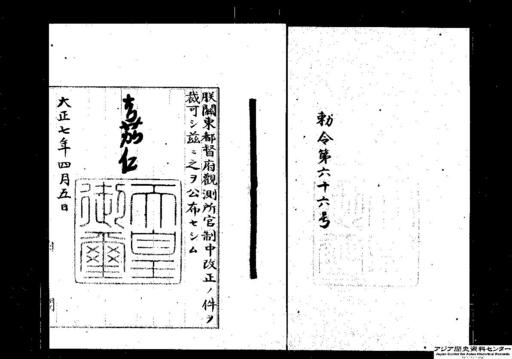 勅令第六十六号
朕關東都督府觀測所官制中改正ノ件ヲ
裁可シ茲ニ之ヲ公布セシム
嘉仁
天皇
御璽
大正七年四月五日
アジア歴史資料センター
Japan Center for Asian Historical Records